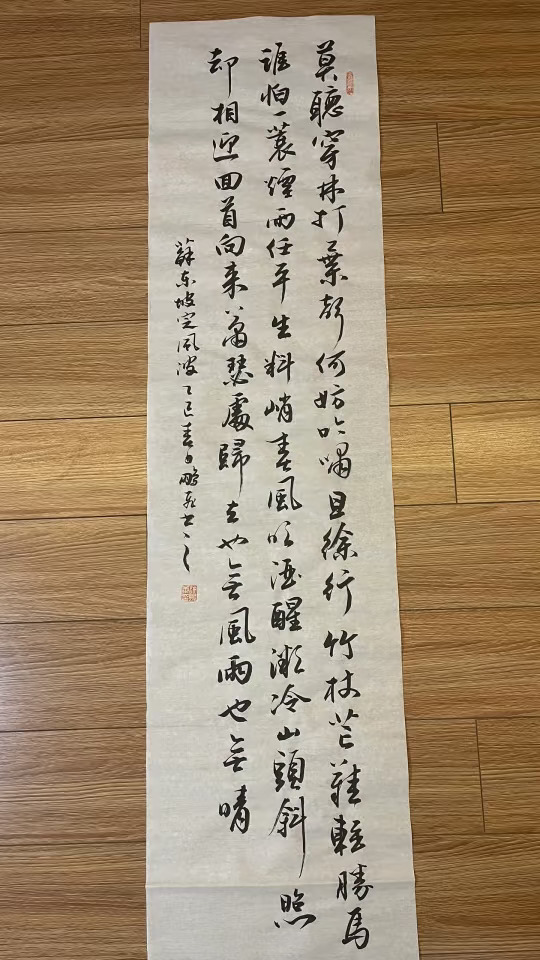 莫聽穿林打葉聲何妨吟嘯且徐行竹杖芒鞋輕勝馬
誰怕一蓑煙雨任平生料峭春風吹酒醒微冷山頭斜照
却相迎回首向来蕭瑟處歸去也無風雨也無晴
蘇東坡定風波乙巳春日鵬飛書之